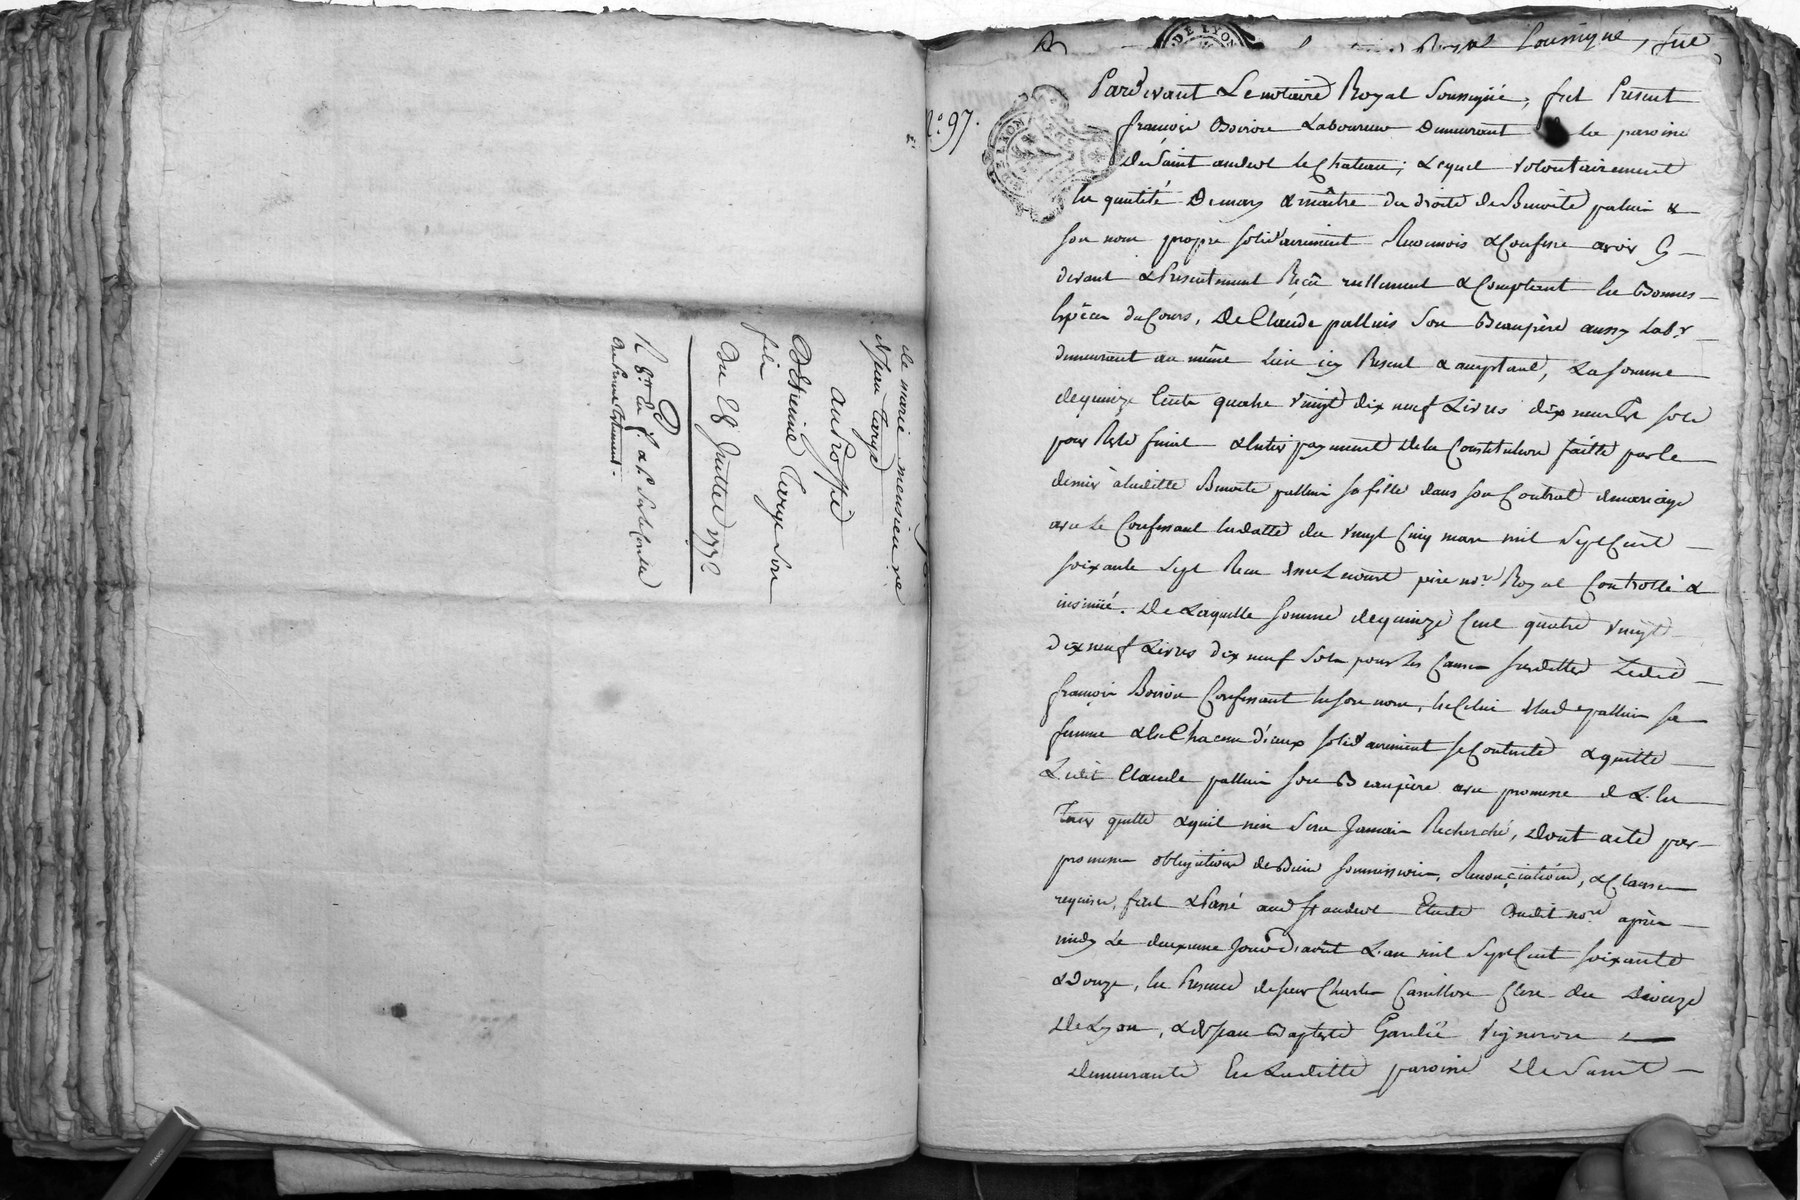 de marie mensieure
& jean Targe
au profit
D'Etienne Targe son
fils
Du 28 Juillet 1772
DE LYON
Royal soussigné, fut
N.° 97.
Pardevant Le notaire Royal Soussigné, fut Present
françois Boiron Laboureur Demeurant la paroisse
De Saint andeol le Chateau; Lequel volontairement
En qualité De mary & maître des droits de Benoite palluis &
son nom propre solidairement Reconnois & Confesse avoir Cy
devant & Presentement Reçû reellement & Comptant En Bonnes
Espèces du Cours, De Claude palluis Son Beaupère aussy Lab.r
demeurant au même Lieu icy Present & acceptant, La somme
de quinze Cents quatre vingt dix neuf Livres dix neuf sols
pour Reste final & Entier payement De la Constitution faitte par le
dernier à laditte Benoite palluis sa fille dans son Contrat de mariage
avec Le Confessant En datte du vingt Cinq mars mil Sept Cent
soixante Sept Recu père no.re Royal Controllé &
insinué. De Laquelle somme de quinze Cent quatre vingt
dix neuf Livres dix neuf Sols pour les Causes susdittes Ledit
françois Boiron Confessant En son nom, En Celui de lad.e palluis sa
femme & de Chacun d'eux solidairement se Contente & quitte
Ledit Claude palluis son Beaupère avec promesse de L'en
Tenir quitte & qu'il n'en Sera Jamais Recherché, Dont acte par
promesse obligations de Biens soumissions, Renonciations, & Clauses
requises, fait & Passé aud St andeol Etude dudit no.re après
midy Le deuxieme Jour d'août L'an mil Sept Cent soixante
& Douze, En Presence de sieur Charles Camillon Clerc du Diocèze
De Lyon, & de Jean Baptiste Gardié vigneron
demeurants En Laditte paroisse De Saint
FRANCE